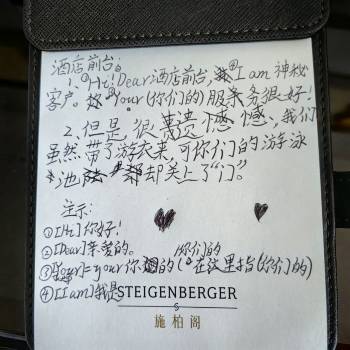 酒店前台:
1. ①Hi! ②Dear酒店前台, ④I am 神秘
客户。③Your (你们的) 服务很好!
2. 但是, 很遗憾, 我们
虽然带了游衣来, 可你们的游泳
池却关上了“门”。
注示:
①[Hi]你好!
②[Dear]亲爱的。 你们的
③[Your]=your你的(在这里指(你们的)
④[I am]我是
STEIGENBERGER
S
施柏阁